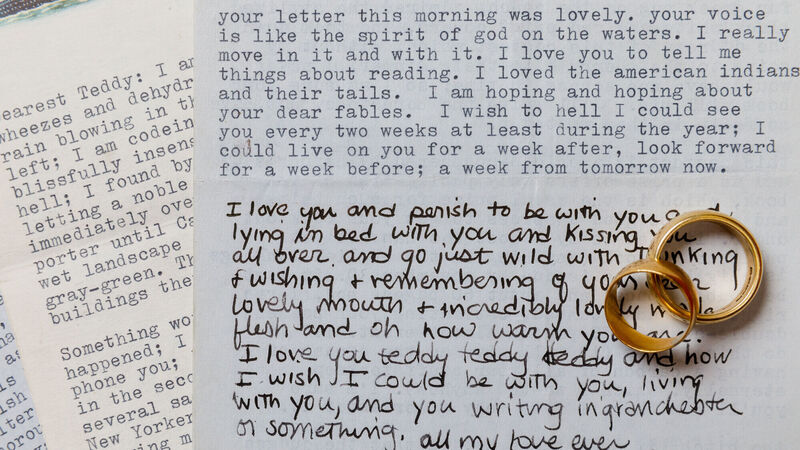 earest Teddy: I am
wheezes and dehydr
rain blowing in th
left; I am codein
blissfully insens
hell; I found by
letting a noble
immediately ove
porter until Ca
wet landscape
gray-green. Th
buildings the
Something wo
happened; I
phone you;
in the seco
several sa
New Yorker
ing m
your letter this morning was lovely. your voice
is like the spirit of god on the waters. I really
move in it and with it. I love you to tell me
things about reading. I loved the american indians
and their tails. I am hoping and hoping about
your dear fables. I wish to hell I could see
you every two weeks at least during the year; I
could live on you for a week after, look forward
for a week before; a week from tomorrow now.
I love you and perish to be with you and
lying in bed with you and kissing you
all over and go just wild with thinking
& wishing & remembering of your dear
lovely mouth & incredibly lovely made
flesh and oh how warm you are.
I love you teddy teddy teddy and how
I wish I could be with you, living
with you, and you writing in granchester
or something. all my love ever